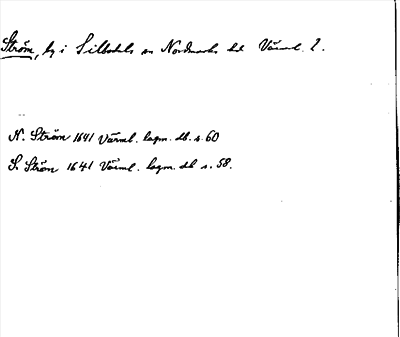 Ström, by i Silbodals sn Nordmarks hd Värml. l.
N. Ström 1641 Värml. lagm. db. s. 60
S. Ström 1641 Värml. lagm. db s. 58.